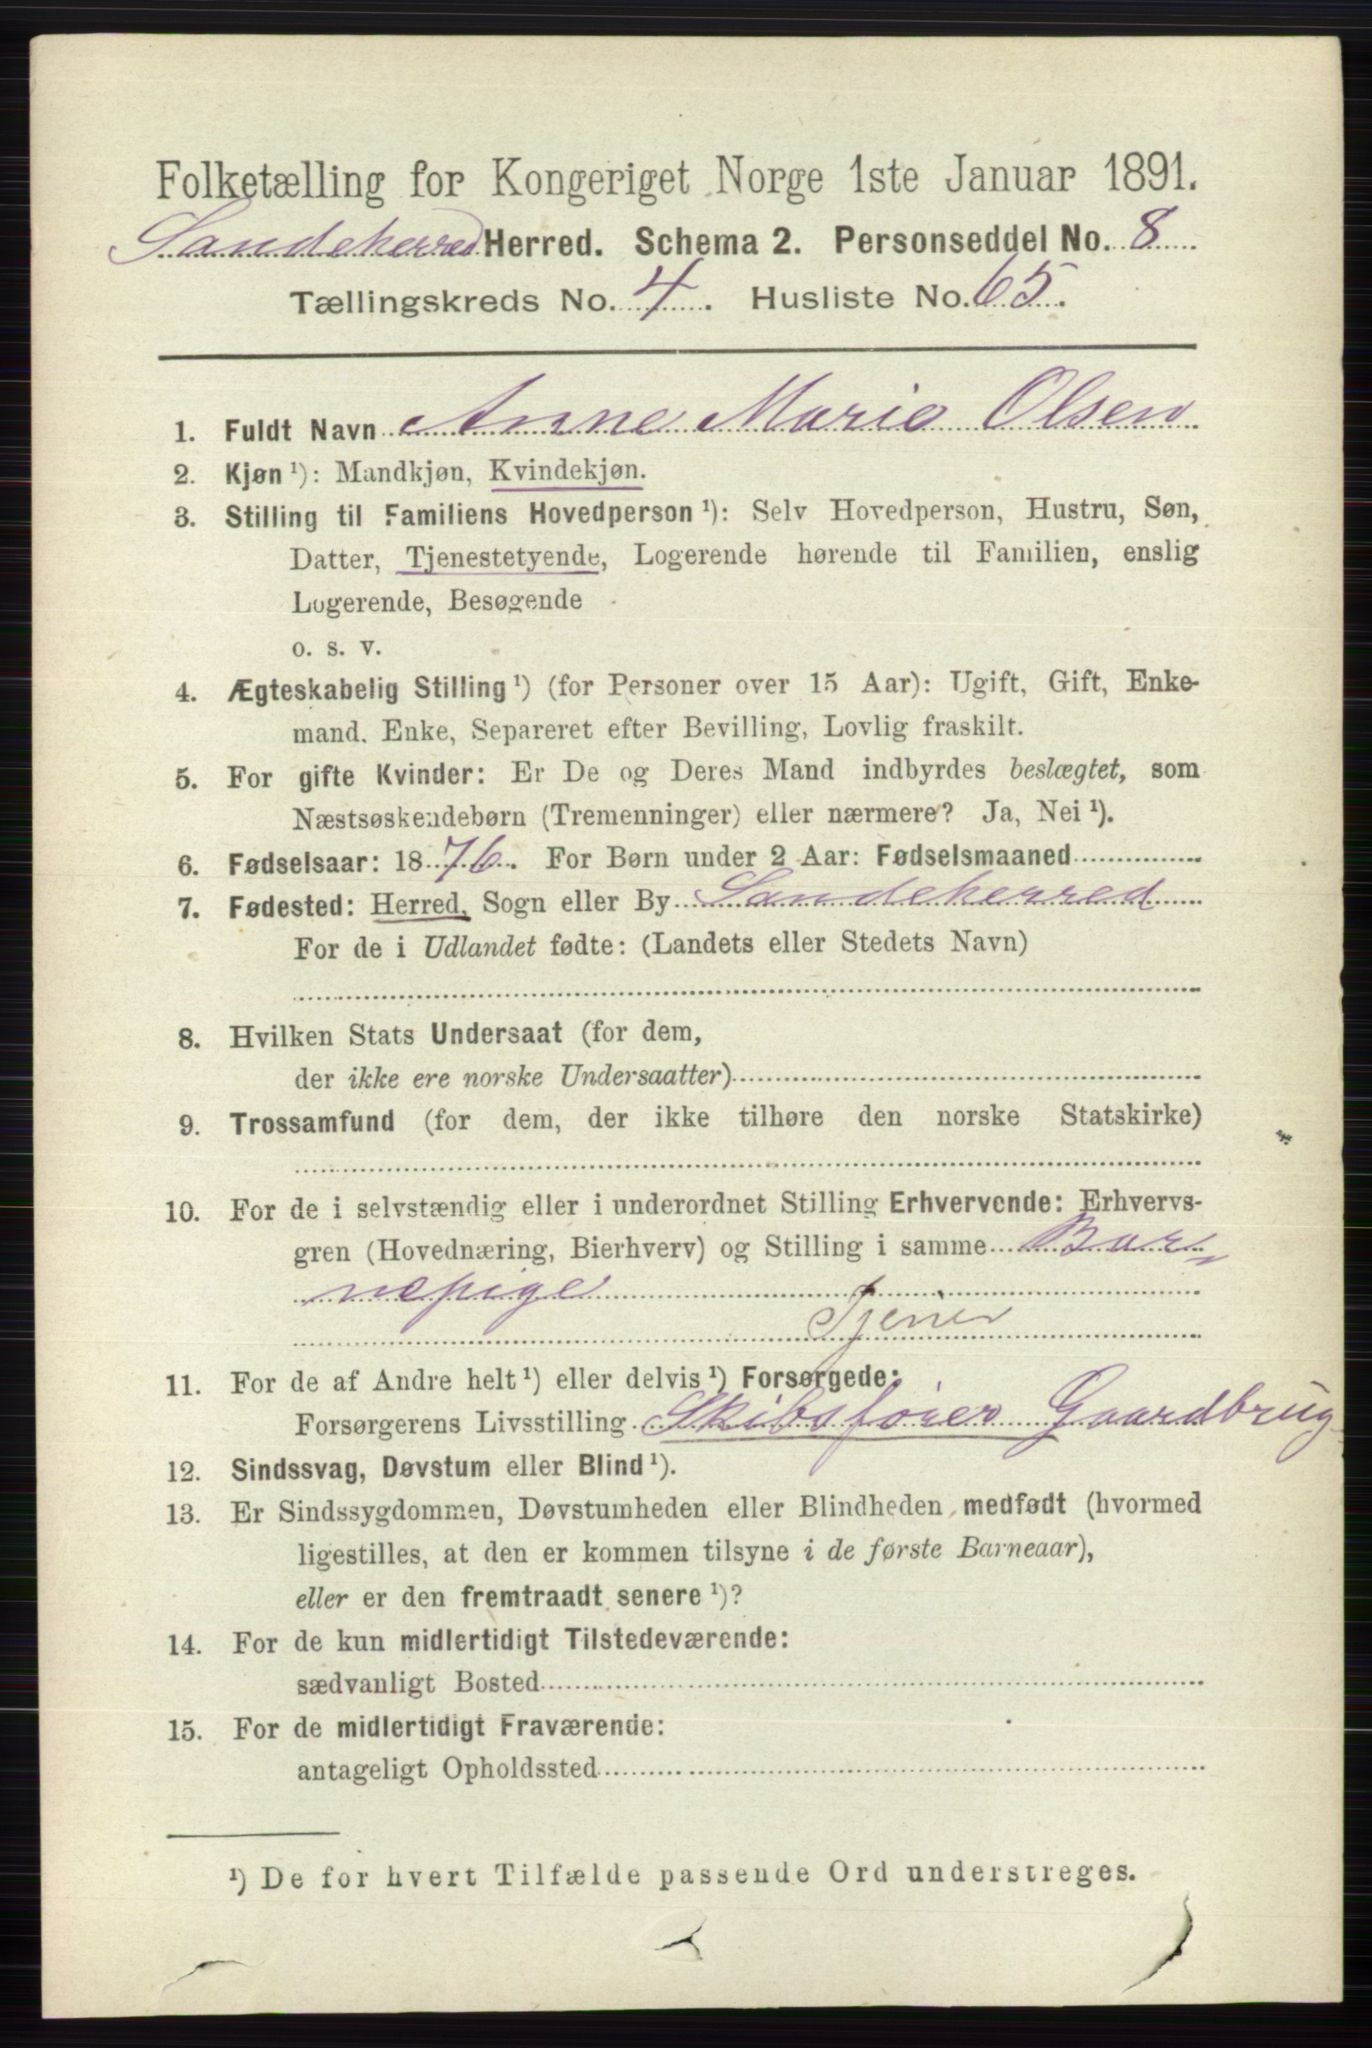 Folketælling for Kongeriget Norge 1ste Januar 1891.
Sandeherred Herred. Schema 2. Personseddel No. 8
Tællingskreds No. 4. Husliste No. 65.
1. Fuldt Navn Anne Marie Olsen
2. Kjøn ¹): Mandkjøn, Kvindekjøn.
3. Stilling til Familiens Hovedperson ¹): Selv Hovedperson, Hustru, Søn,
Datter, Tjenestetyende, Logerende hørende til Familien, enslig
Logerende, Besøgende
o. s. v.
4. Ægteskabelig Stilling ¹) (for Personer over 15 Aar): Ugift, Gift, Enke-
mand. Enke, Separeret efter Bevilling, Lovlig fraskilt.
5. For gifte Kvinder: Er De og Deres Mand indbyrdes beslægtet, som
Næstsøskendebørn (Tremenninger) eller nærmere? Ja, Nei ¹).
6. Fødselsaar: 1876. For Børn under 2 Aar: Fødselsmaaned
7. Fødested: Herred, Sogn eller By Sandeherred
For de i Udlandet fødte: (Landets eller Stedets Navn)
8. Hvilken Stats Undersaat (for dem,
der ikke ere norske Undersaatter)
9. Trossamfund (for dem, der ikke tilhøre den norske Statskirke)
10. For de i selvstændig eller i underordnet Stilling Erhvervende: Erhvervs-
gren (Hovednæring, Bierhverv) og Stilling i samme Bar-
nepige
Tjener
11. For de af Andre helt ¹) eller delvis ¹) Forsørgede:
Forsørgerens Livsstilling Skibsfører Gaardbrug
12. Sindssvag, Døvstum eller Blind ¹).
13. Er Sindssygdommen, Døvstumheden eller Blindheden medfødt (hvormed
ligestilles, at den er kommen tilsyne i de første Barneaar),
eller er den fremtraadt senere ¹)?
14. For de kun midlertidigt Tilstedeværende:
sædvanligt Bosted
15. For de midlertidigt Fraværende:
antageligt Opholdssted
¹) De for hvert Tilfælde passende Ord understreges.